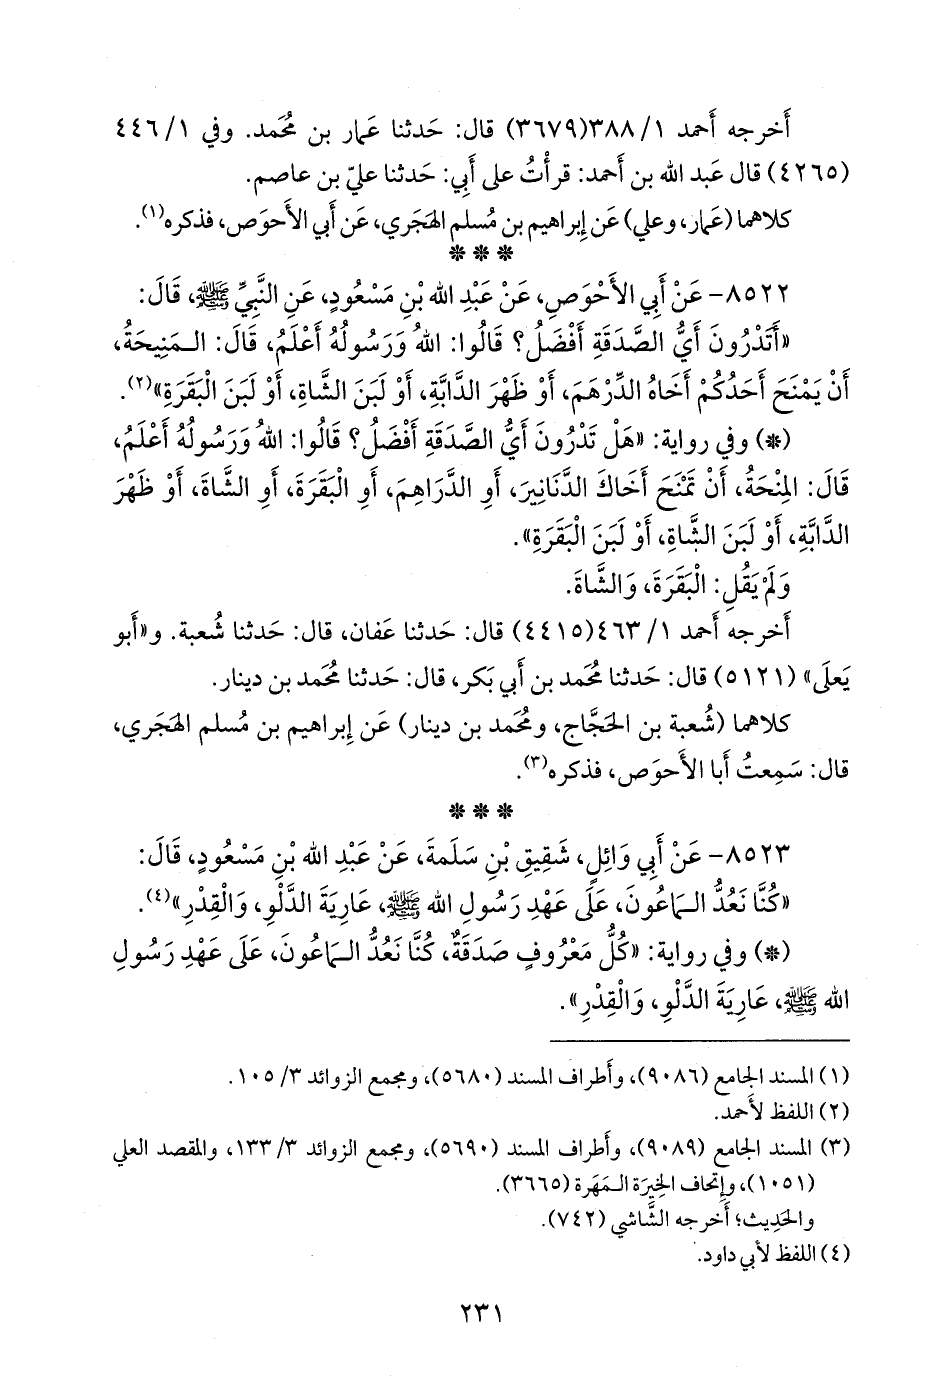 أَخرجه أَحمد ١/ ٣٨٨(٣٦٧٩) قال: حَدثنا عَمار بن مُحمد. وفي ١/ ٤٤٦
(٤٢٦٥) قال عَبد الله بن أَحمد: قرأْتُ على أَبي: حَدثنا عليّ بن عاصم.
كلاهما (عَمار، وعلي) عَن إِبراهيم بن مُسلم الهَجَري، عَن أَبي الأَحوَص، فذكره(١).
* * *
٨٥٢٢- عَنْ أَبِي الأَحْوَصِ، عَنْ عَبْدِ الله بْنِ مَسْعُودٍ، عَنِ النَّبِيِّ ﷺ، قَالَ:
«أَتَدْرُونَ أَيُّ الصَّدَقَةِ أَفْضَلُ؟ قَالُوا: اللهُ وَرَسُولُهُ أَعْلَمُ، قَالَ: الـمَنِيحَةُ،
أَنْ يَمْنَحَ أَحَدُكُمْ أَخَاهُ الدِّرْهَمَ، أَوْ ظَهْرَ الدَّابَّةِ، أَوْ لَبَنَ الشَّاةِ، أَوْ لَبَنَ الْبَقَرَةِ»(٢).
(*) وفي رواية: «هَلْ تَدْرُونَ أَيُّ الصَّدَقَةِ أَفْضَلُ؟ قَالُوا: اللهُ وَرَسُولُهُ أَعْلَمُ،
قَالَ: المِنْحَةُ، أَنْ تَمْنَحَ أَخَاكَ الدَّنَانِيرَ، أَوِ الدَّرَاهِمَ، أَوِ الْبَقَرَةَ، أَوِ الشَّاةَ، أَوْ ظَهْرَ
الدَّابَّةِ، أَوْ لَبَنَ الشَّاةِ، أَوْ لَبَنَ الْبَقَرَةِ».
وَلَمْ يَقُلِ: الْبَقَرَةَ، وَالشَّاةَ.
أَخرجه أَحمد ١/ ٤٦٣(٤٤١٥) قال: حَدثنا عَفان، قال: حَدثنا شُعبة. و«أَبو
يَعلَى» (٥١٢١) قال: حَدثنا مُحَمد بن أَبي بَكر، قال: حَدثنا مُحَمد بن دينار.
كلاهما (شُعبة بن الحَجَّاج، ومُحَمد بن دينار) عَن إِبراهيم بن مُسلم الهَجَري،
قال: سَمِعتُ أَبا الأَحوَص، فذكره(٣).
* * *
٨٥٢٣- عَنْ أَبِي وَائِلٍ، شَقِيقِ بْنِ سَلَمةَ، عَنْ عَبْدِ الله بْنِ مَسْعُودٍ، قَالَ:
«كُنَّا نَعُدُّ الـمَاعُونَ، عَلَى عَهْدِ رَسُولِ الله ﷺ، عَارِيَةَ الدَّلْوِ، وَالْقِدْرِ»(٤).
(*) وفي رواية: «كُلُّ مَعْرُوفٍ صَدَقَةٌ، كُنَّا نَعُدُّ الـمَاعُونَ، عَلَى عَهْدِ رَسُولِ
الله ﷺ، عَارِيَةَ الدَّلْوِ، وَالْقِدْرِ».
(١) المسند الجامع (٩٠٨٦)، وأَطراف المسند (٥٦٨٠)، ومجمع الزوائد ٣/ ١٠٥.
(٢) اللفظ لأَحمد.
(٣) المسند الجامع (٩٠٨٩)، وأَطراف المسند (٥٦٩٠)، ومجمع الزوائد ٣/ ١٣٣، والمقصد العلي
(١٠٥١)، وإِتحاف الخِيرَة الـمَهَرة (٣٦٦٥).
والحَدِيث؛ أَخرجه الشَّاشي (٧٤٢).
(٤) اللفظ لأبي داود.
٢٣١